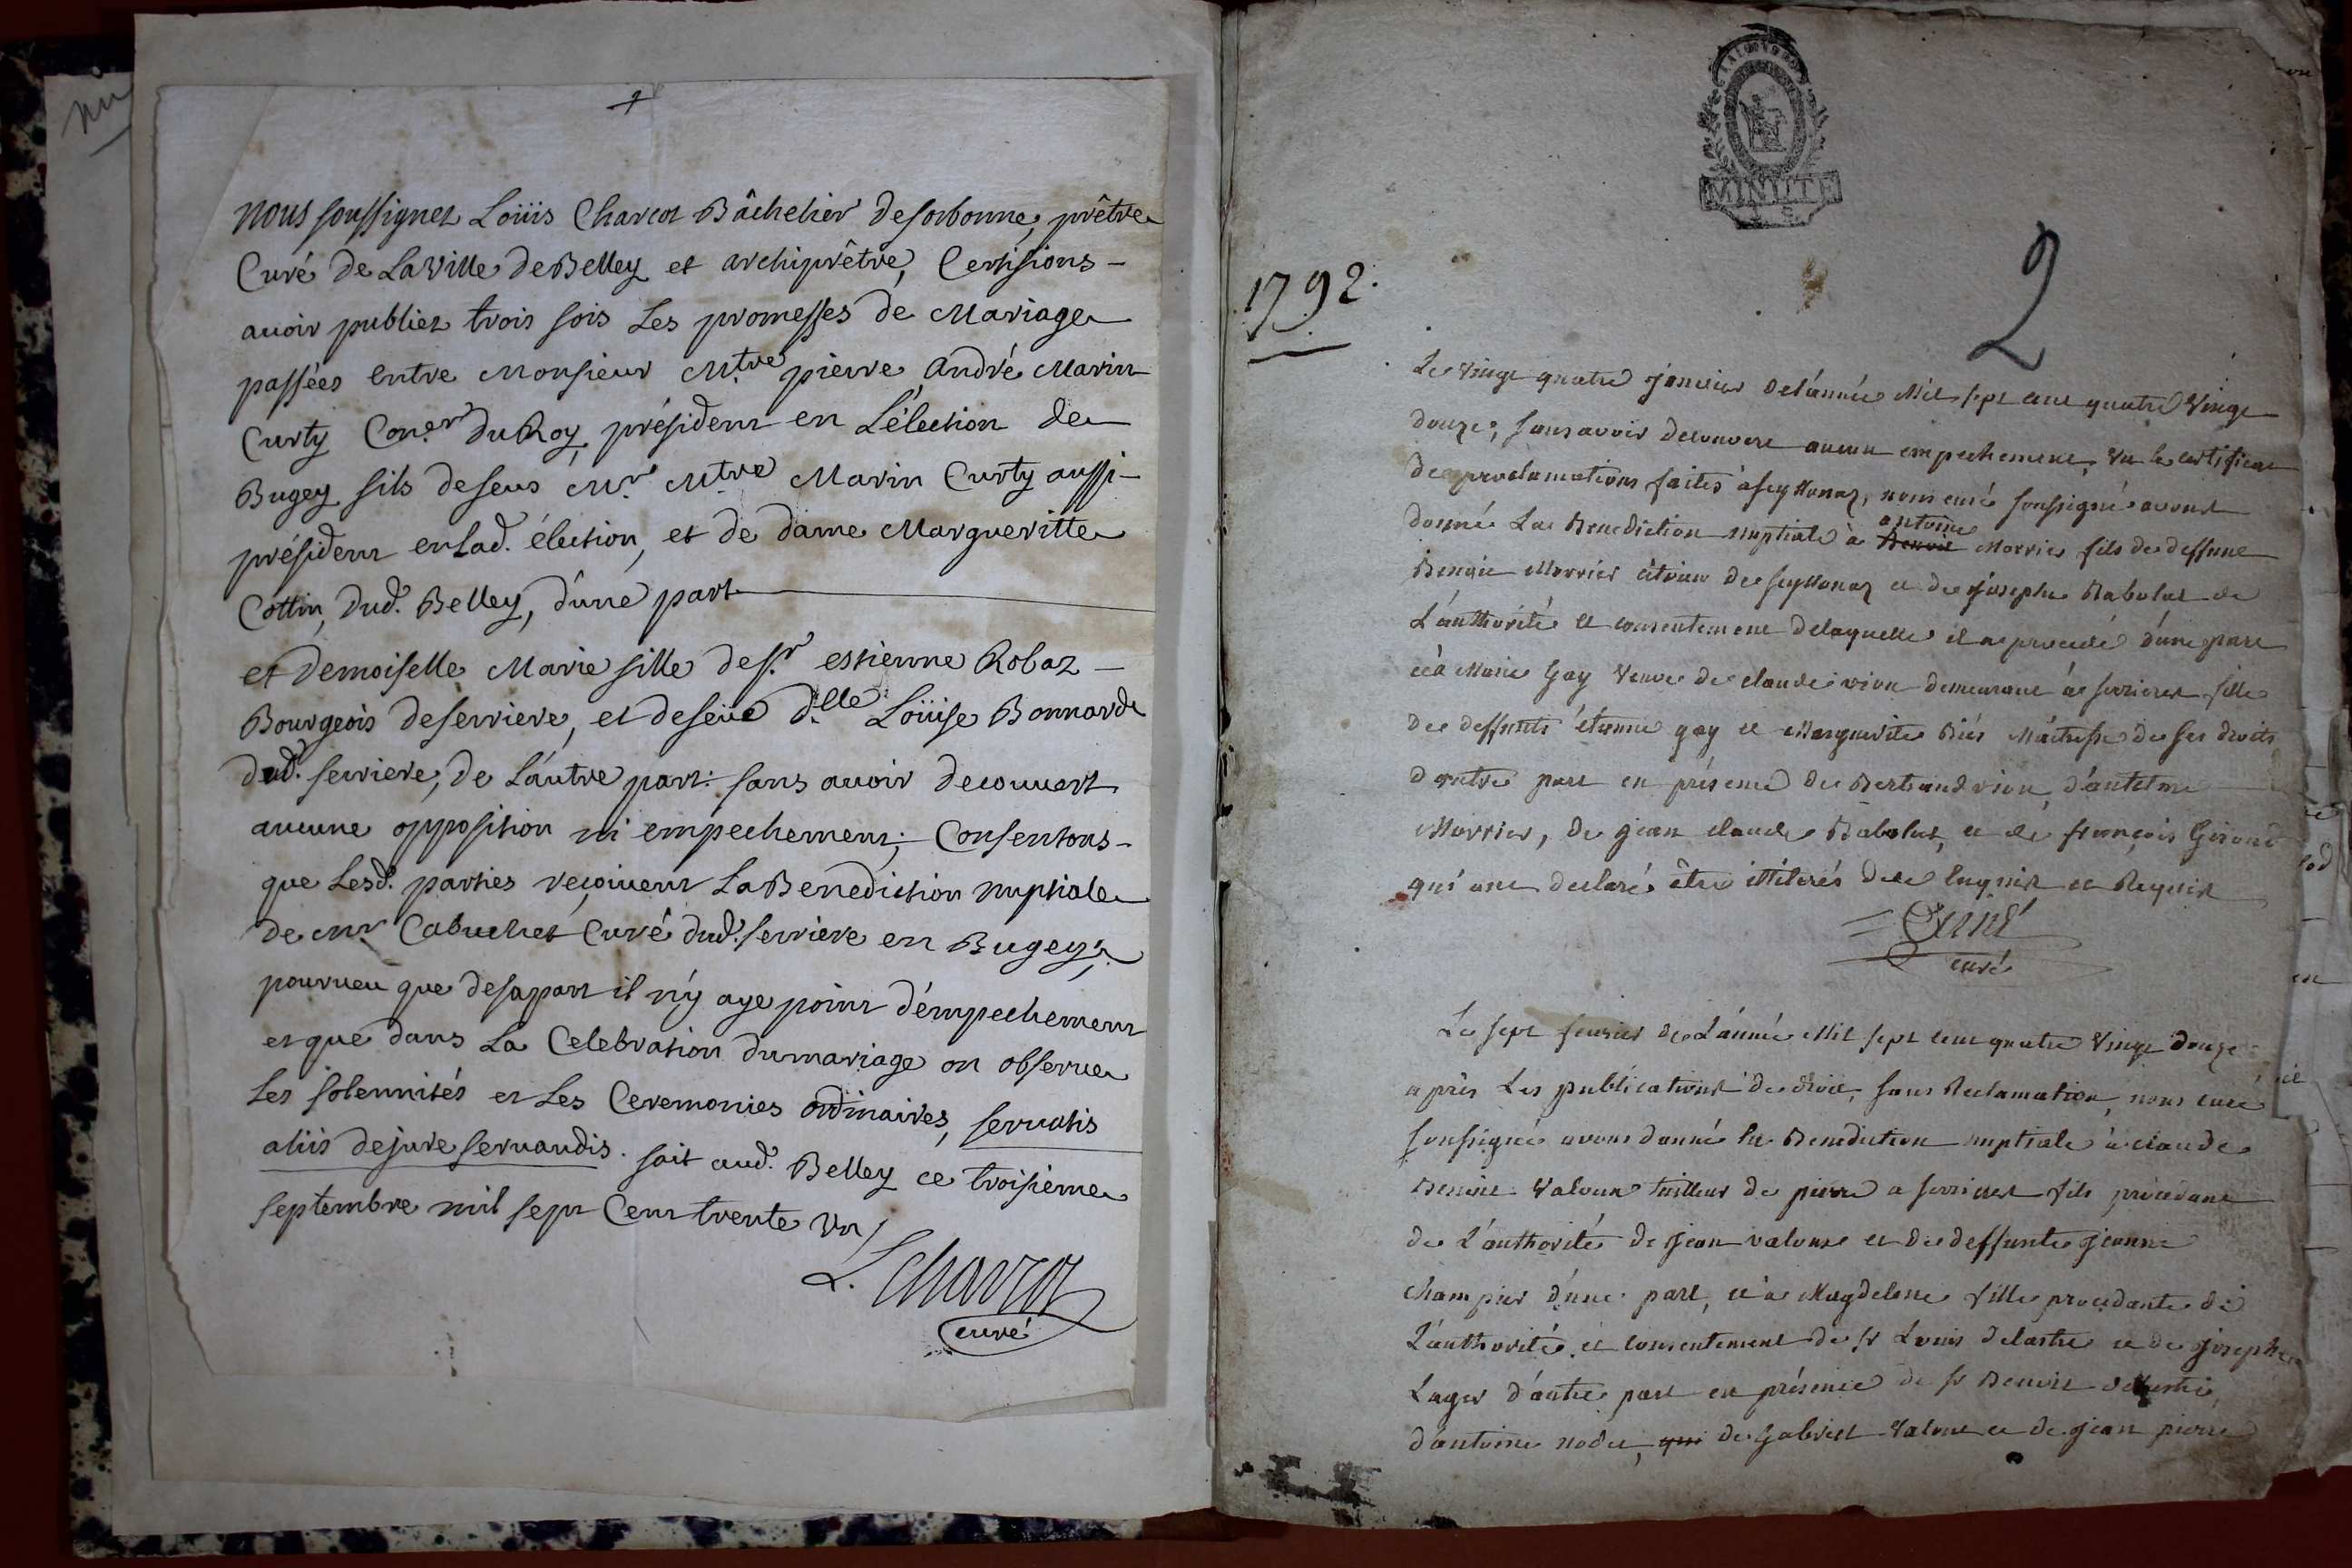 nous soussignez Loüis Charcot Bâchelier de sorbonne, prêtre
Curé de La Ville de Belley et archiprêtre, Certifions -
avoir publiez trois fois Les promesses de Mariage
passées entre Monsieur Mtre pierre André Marin
Curty Coner du Roy, président en L'élection de
Bugey fils de feus Mr Mtre Marin Curty aussi -
président en lad. élection, et de dame Margueritte
Cottin, dud. Belley, d'une part
et Demoiselle Marie fille de sr estienne Robaz -
Bourgeois de serriere, et de feüe dlle Loüise Bonnarde
dud. serriere, de L'autre part: sans avoir decouvert
aucune opposition ni empechement; Consentons -
que Lesd. parties reçoivent La Benediction nuptiale
de mr Cabuchet Curé dud. serriere en Bugey,
pourveu que de sa part il n'y aye point d'empechement
et que dans La Celebration du mariage on observe
Les solennités et Les Ceremonies ordinaires, servatis
aliis de jure servandis. fait aud. Belley ce troisième
septembre mil sept Cent trente un
L. Charcot
curé
1792.
MINUTE
2
Le vingt quatre janvier de l'année Mil sept cent quatre Vingt
douze, sans avoir decouvert aucun empechement, vu le certificat
de proclamations faites à seyssonaz, nous curé soussigné avons
antoine
donné La Benediction nuptiale à Benoit Morrier fils de deffunt
Benoit Morrier citoien de seyssonaz et de josephe Babolat de
L'authorité et consentement de laquelle il a procedé d'une part
et à Marie Gay Veuve de claude vion demeurant à serrieres fille
des deffunts étienne gay et Marguerite Maitresse de ses droits
d'autre part en présence de Bertrand vion, d'antelme
Morrier, de jean claude Babolat, et de françois Girond
qui ont declaré être illiterés de ce enquis et Requis
curé
Le sept fevrier de L'année Mil sept cent quatre Vingt douze
après Les publications de droit, sans Reclamation, nous curé
soussigné avons donné la Benediction nuptiale à claude
Benoit Valoux tailleur de pierre a serrieres fils procedant
de L'authorité de Jean valoux et de deffunte jeanne
Champier d'une part, et à Magdelene fille procedante de
L'authorité et consentement de sr Louis delastre et de josephe
Lager d'autre part en présence de sr Benoit delastre,
d'antoine nodet, qui de Gabriel Valoux et de jean pierre